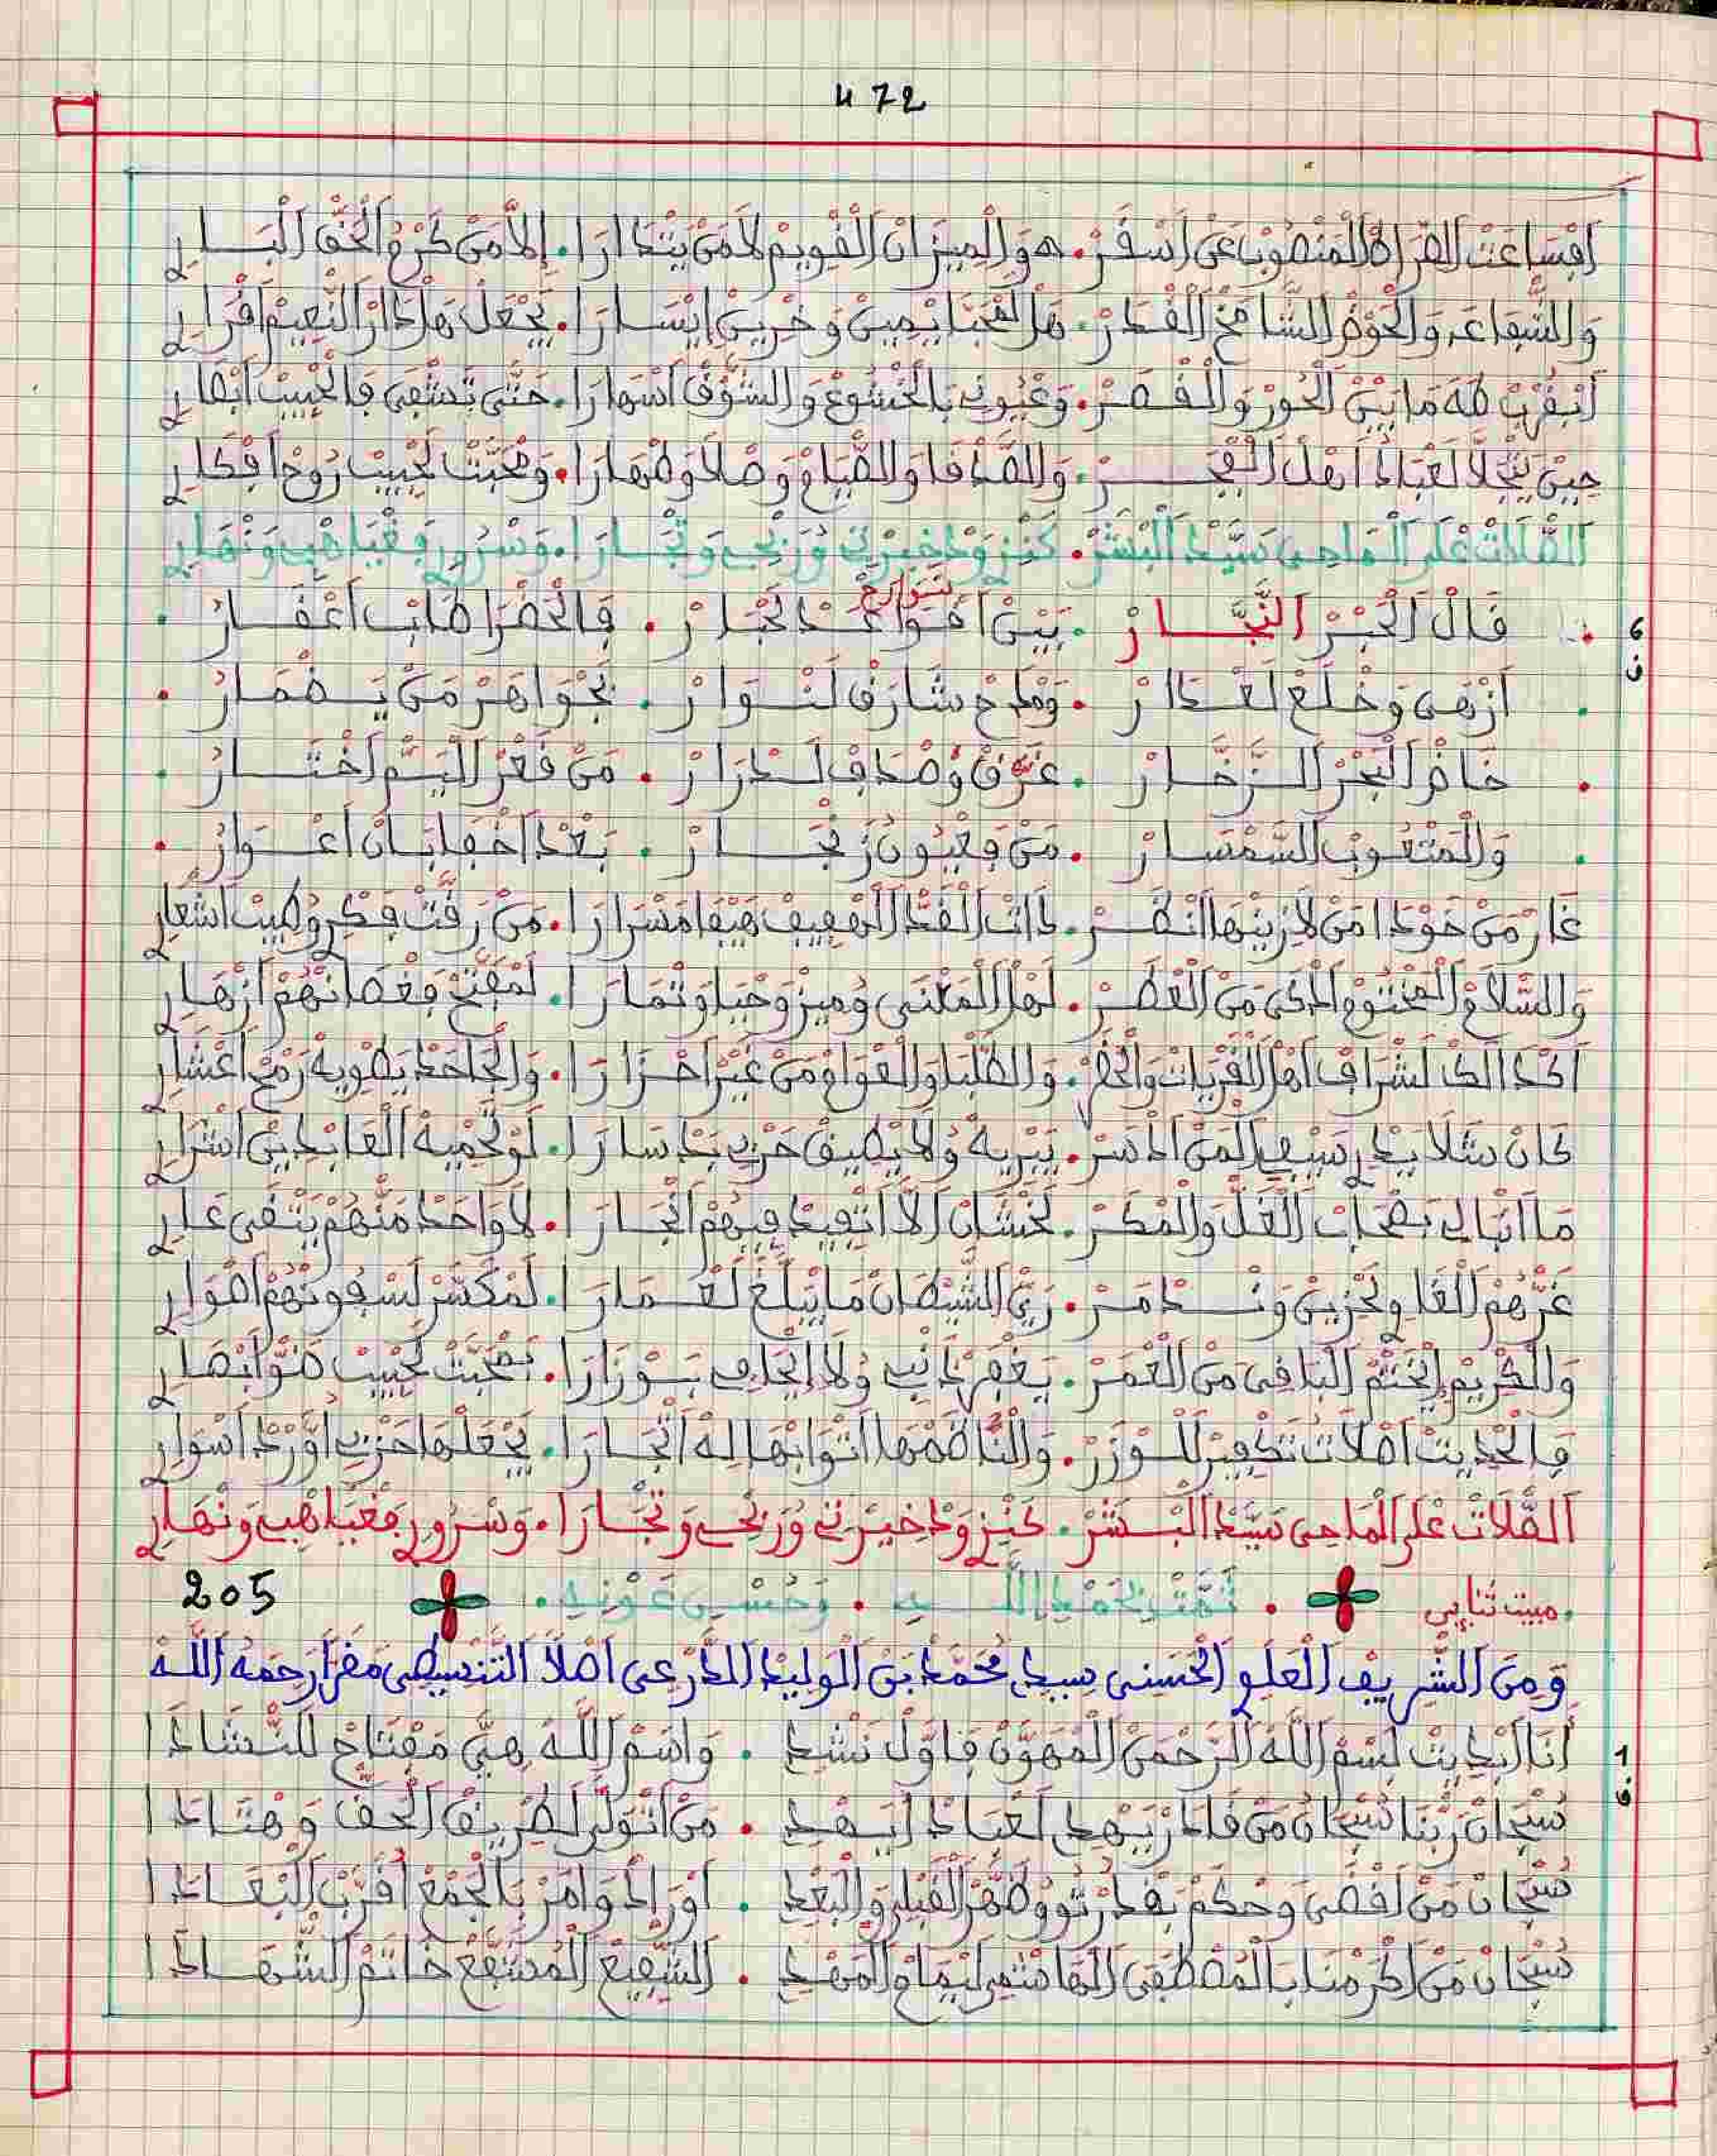 472
افساعت الصراط المنصوب عن اسقر. هو الميزان القويم لا من يتدارا. إلا من كرم الحق البار
والشفاعة والحوض الشامخ القدر. هل لقجبا يميين وخريين ايسارا. يجعل هاذ ار النعيم اقرار
أبقرب طه مابين الحور والقصر. وعيوني بالخشوع والشوق اسهارا. حتى تشفى فالحبيب ابصار
حين يتجلا لعباد اهل الفجر. والصدقا والصيام وصلا وطهارا. ومحبت لحبيب روح افكار
الصلات على الماحي سيد البشر. كنز وذخيرتي وربحي وتجارا. وسرور فغياهبي ونهار
قال الحبر النجار. بين اقواعد لجبار. فالحضرا طابت اعقار.
تواريخ
ازهى وخلع لعدار. ومدح شارق لنوار. بجواهر من يضمار.
خاض البحر الزخار. عرق وصداف لدرار. من قعر اليم اختار.
والمتعوب السمسار. من فعيون زنجار. بعد اخفا بان اعوار.
غار من خودا من لا زينها انظر. ذات القد الهفيف هيفا مسرارا. من رقت فكر وطيب اشعار
والسلام المختوم اذكى من العطر. لهل المعنى وميز وحبا وتمارا. لمفتح فغصانهم ازهار
اكذالك لشراف اهل القريات والحضر. والطلبا والعوام من غير احزارا. والجاحد يطويه رمح اعشار
كان سلا بيد سيفي لمن ادسر. يبريه ولا يطيق حربي بدسارا. لو تحميه العابدين اشرار
ما انبالي بصحاب الغل والمكر. لخشان الا اتفيد فيهم انجارا. لا واحد منهم يتقى عار
غرهم الغاو لحزين وندمر. زي الشيطان ما يبلغ لعمارا. لمكسر لسفونهم اهوار
والكريم إيختم الباقي من العمر. يغفر ذانبي ولا إيجافي بوزارا. بمحبت لحبيب ضو ابصار
فالحديت اصلات تكفير للوزر. والناظمها اتوابها له انجارا. يجعلها حزبي اورد اسوار
الصلات على الماحي سيد البشر. كنز وذخيرتي وربحي وتجارا. وسرور فغياهبي ونهار
.مبيت ثنايي. تمت بحمد الله. وحسن عونه. 205
ومن الشريف العلو الحسني سيد محمد بن الوليد الدرعي اصلا التنسيطي مقرا رحمه الله
أنا ابديت بسم الله الرحمن المهون فاول نشد. واسم الله هي مفتاح للنشادا
سبحان ربنا سبحان من قادر يهد لعباد ايهد. من اتولى لطريق الحق وهتادا
سبحان من اقضى وحكم بقدرتو وظهر القبل والبعد. اوراد وامر بالجمع اقرب البعادا
سبحان من اكرمنا بالمصطفى الهاشمي ليمام المهد. الشفيع المشفع خاتم الشهادا
6
ف
1
ف